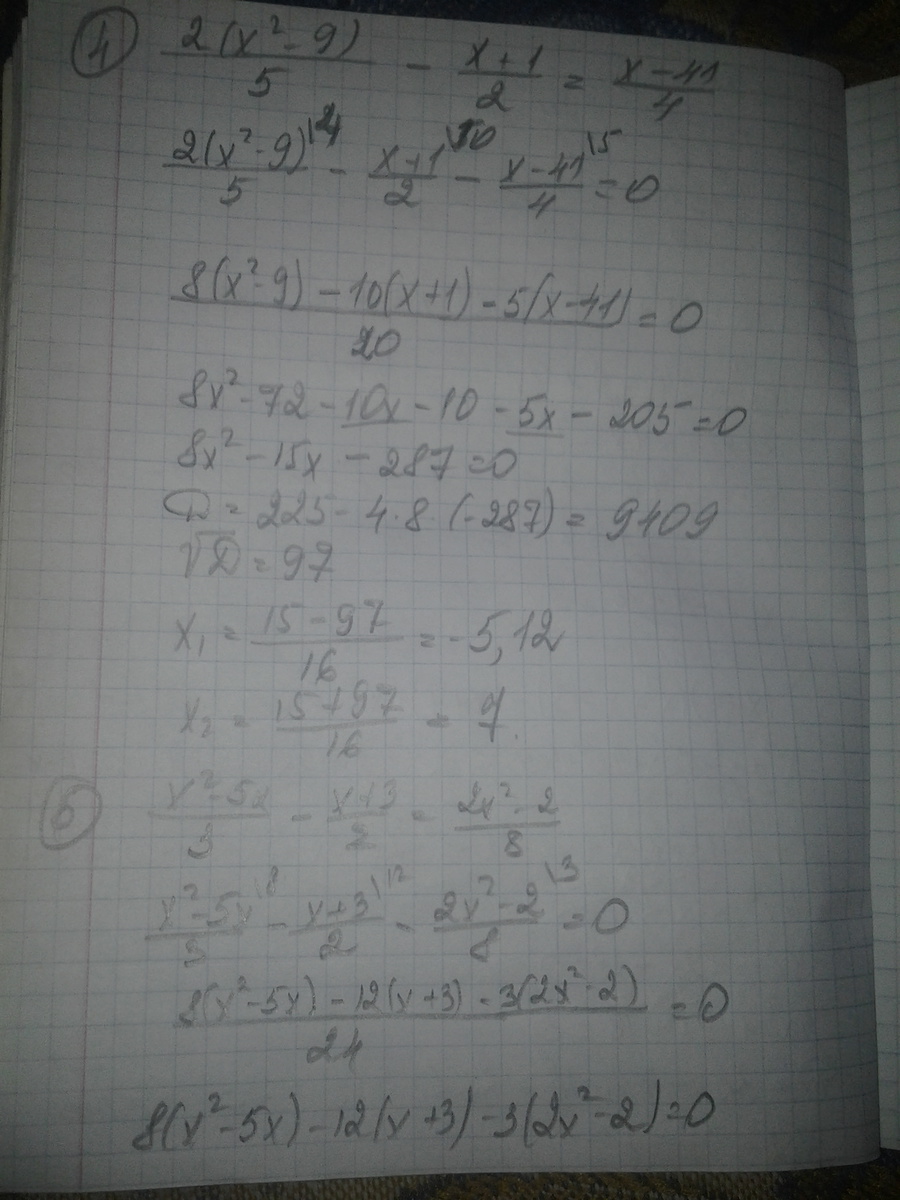 4) 2(x²-9)/5 - x+1/2 = x-41/4
2(x²-9)\4/5 - x+1\10/2 - x-41\5/4 = 0
8(x²-9) - 10(x+1) - 5(x-41)/20 = 0
8x² - 72 - 10x - 10 - 5x - 205 = 0
8x² - 15x - 287 = 0
D = 225 - 4·8·(-287) = 9409
√D = 97
x₁ = 15-97/16 = -5,12
x₂ = 15+97/16 = 7.
5) x²-5x/3 - x+3/2 = 2x²-2/8
x²-5x\8/3 - x+3\12/2 - 2x²-2\3/8 = 0
8(x²-5x) - 12(x+3) - 3(2x²-2)/24 = 0
8(x²-5x) - 12(x+3) - 3(2x²-2) = 0